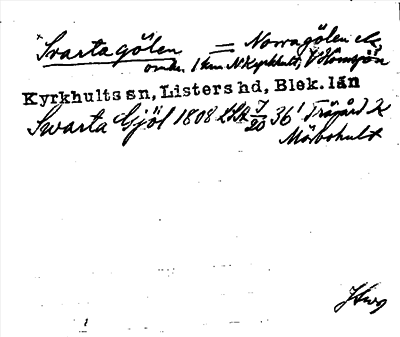 Svartagölen = Norragölen
omkr. 1 km N Kyrkhult, V Homsjön
Kyrkhults sn, Listers hd, Blek. län
Swarta Gjöl 1808 LSA 7/20 36'
Mörbohult